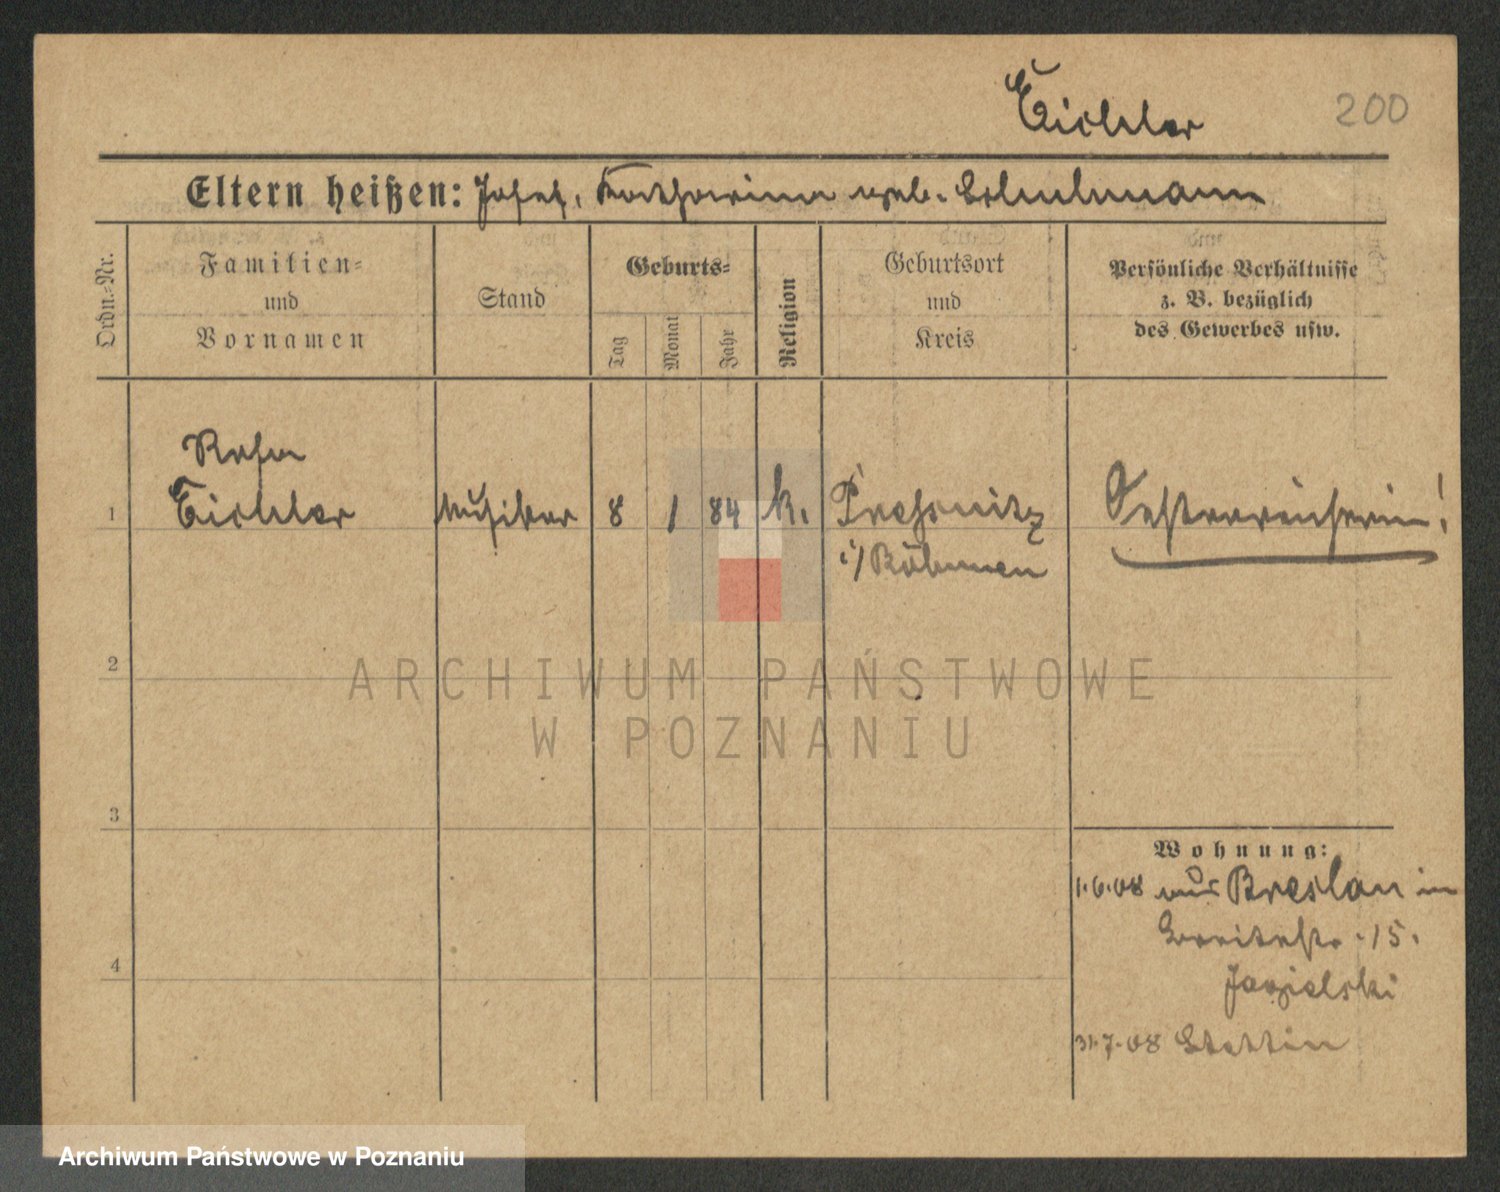 Eichler
200
Eltern heißen: Josef, Katharina geb. Schuhmann
Ordn.-Nr.
Familien-
und
Vornamen
Stand
Geburts-
Tag
Monat
Jahr
Religion
Geburtsort
und
Kreis
Persönliche Verhältnisse
z. B. bezüglich
des Gewerbes usw.
Rosa
1 Eichler Musiker 8 1 84 k. Pressnitz Oesterreicherin!
i/Böhmen
2
ARCHIWUM PAŃSTWOWE
W POZNANIU
3
Wohnung:
1.6.08 aus Breslau in
Breitestr. 15.
Jagielski
4
31.7.08 Stettin
Archiwum Państwowe w Poznaniu